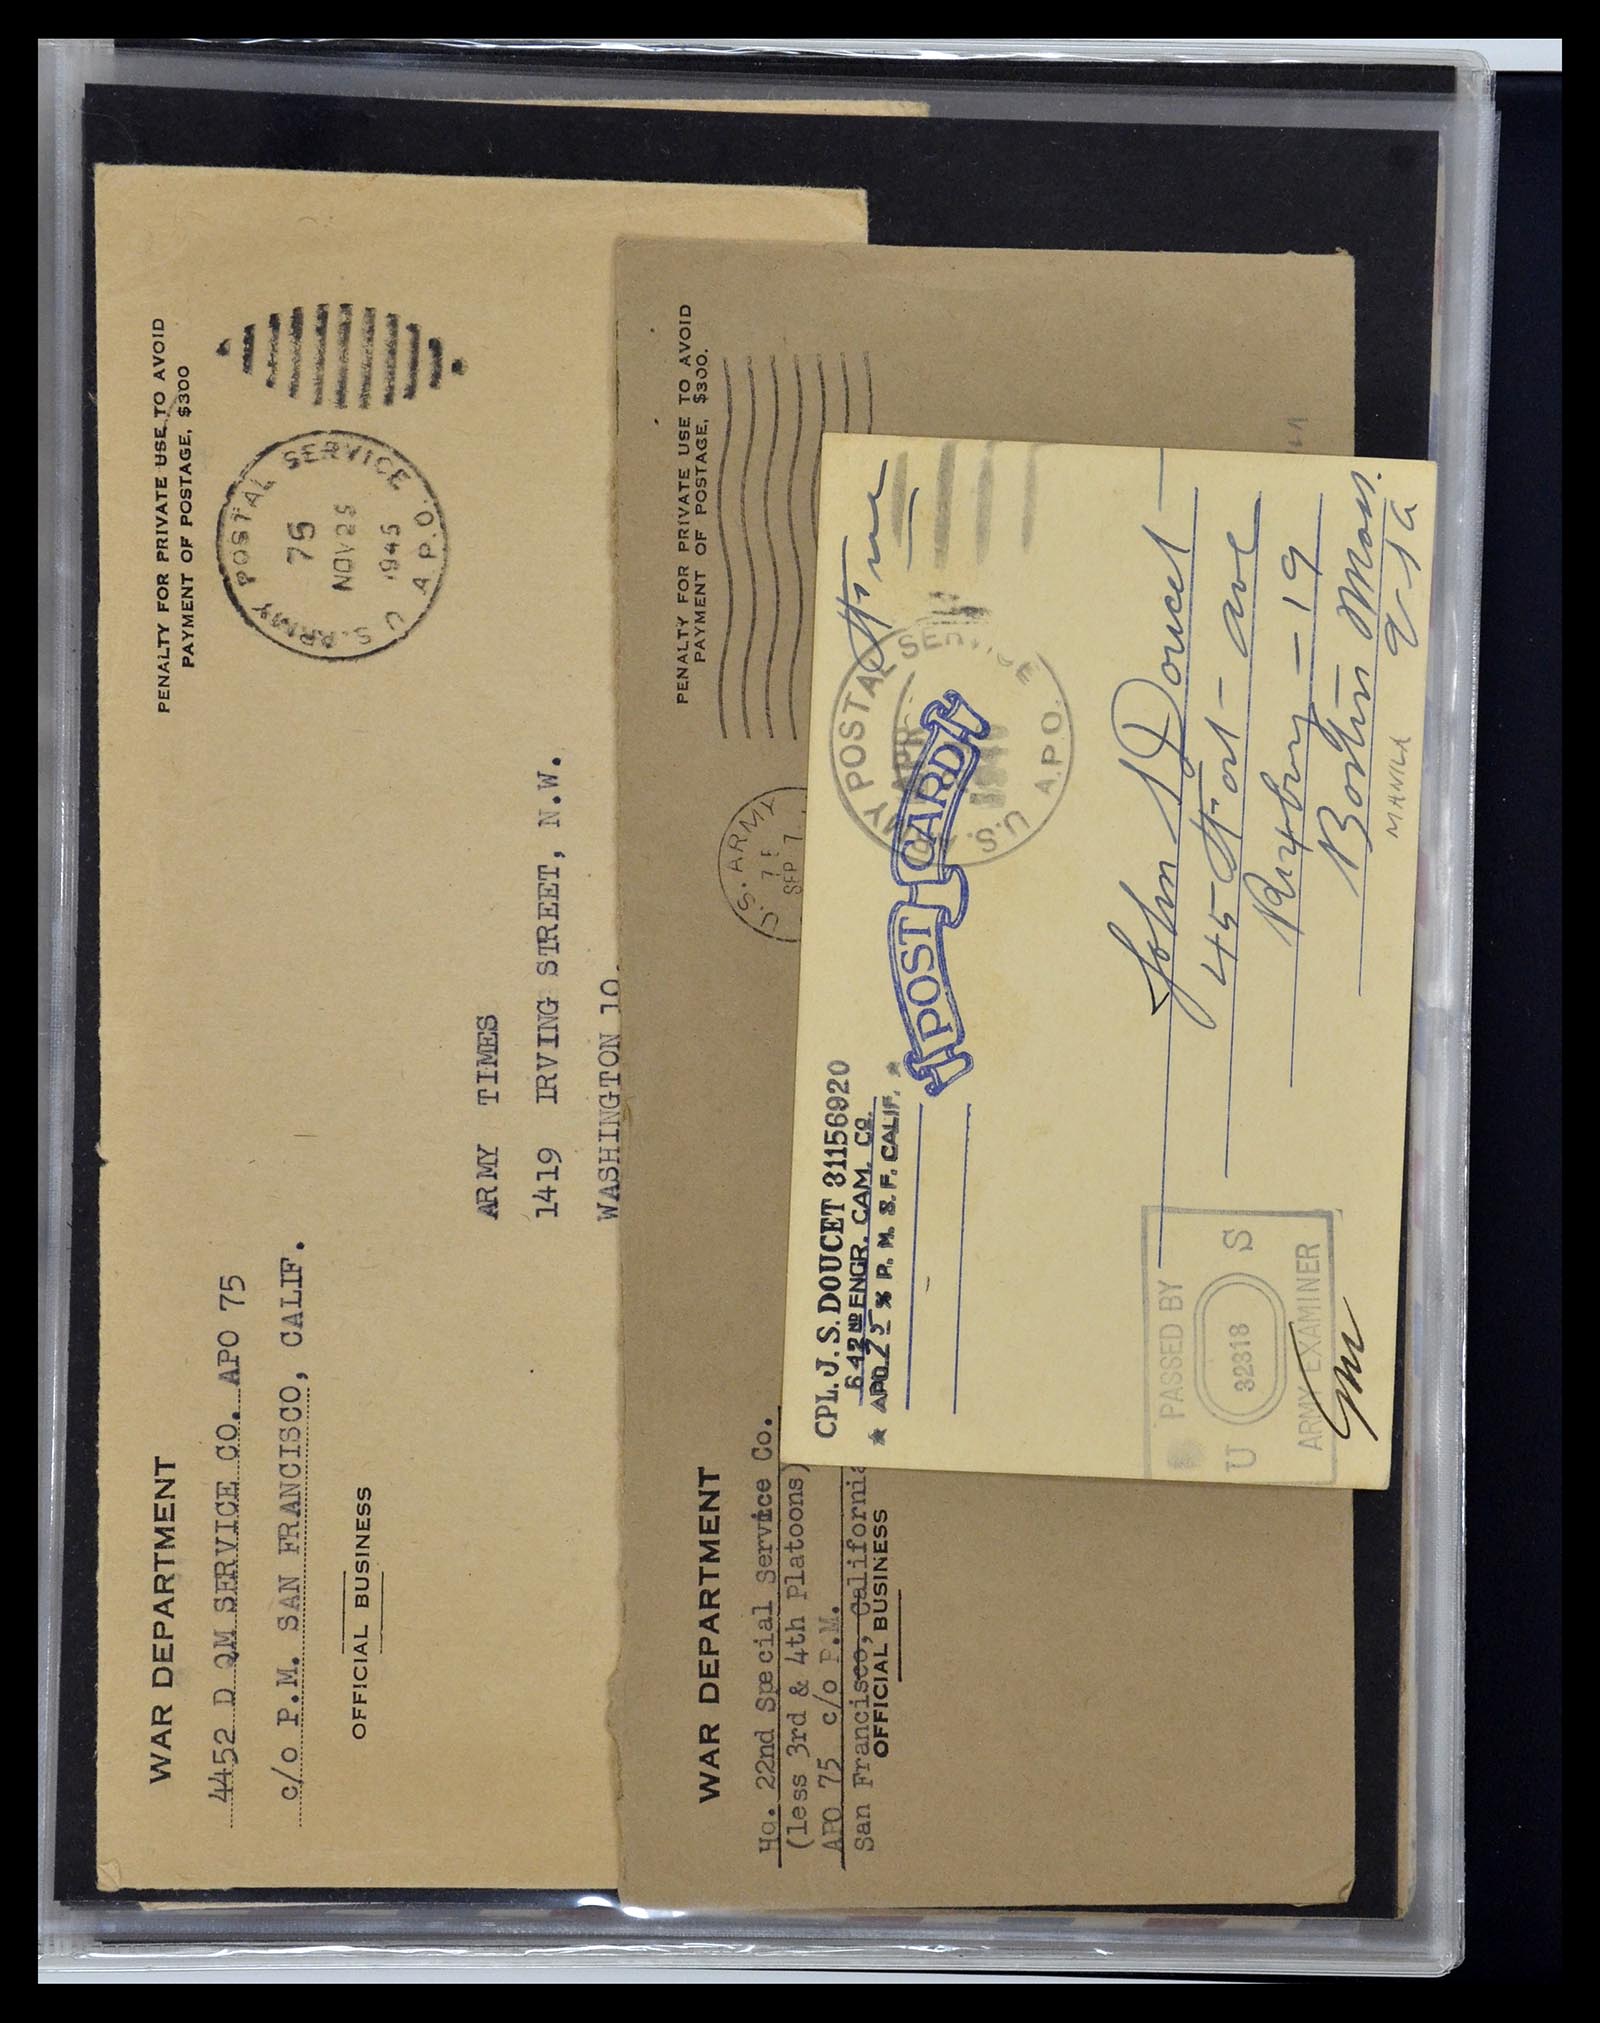 WAR DEPARTMENT
4452 D QM SERVICE CO. APO 75
c/o P.M. SAN FRANCISCO, CALIF.
OFFICIAL BUSINESS
PENALTY FOR PRIVATE USE TO AVOID
PAYMENT OF POSTAGE, $300
U.S. ARMY POSTAL SERVICE
75
NOV 25
1945
A.P.O.
ARMY TIMES
1419 IRVING STREET, N.W.
WASHINGTON 10.
WAR DEPARTMENT
Hq. 22nd Special Service Co.
(less 3rd & 4th Platoons)
APO 75 c/o P.M.
San Francisco, California
OFFICIAL BUSINESS
PENALTY FOR PRIVATE USE TO AVOID
PAYMENT OF POSTAGE, $300.
U.S. ARMY
SEP 7
CPL. J. S. DOUCET 31156920
642 ND ENGR. CAM. CO.
APO 75 % P. M. S. F. CALIF.
POST CARD
U.S. ARMY POSTAL SERVICE
APR
A.P.O.
John S Doucet
45 Fort - ave
Roxbury - 19
Boston Mass.
MANILA
PASSED BY
U 32318 S
ARMY EXAMINER